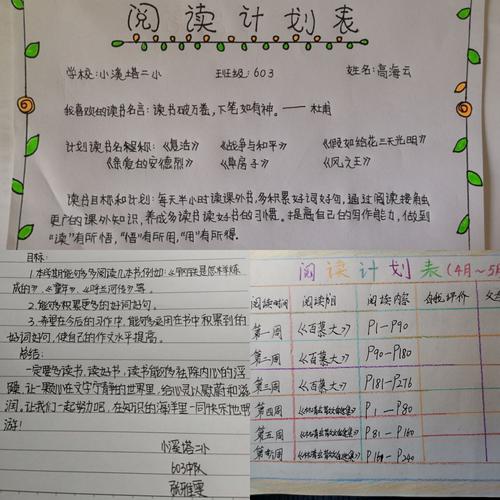 阅读计划表
学校:小溪塔二小 班级:603 姓名:高海云
我喜欢的读书名言:读书破万卷,下笔如有神。——杜甫
计划读书名称:《复活》 《战争与和平》 《假如给我三天光明》
《亲爱的安德烈》 《草房子》 《风之王》
读书目标和计划:每天半小时读课外书,多积累好词好句,通过阅读接触
更广的课外知识,养成多读书读好书的习惯。提高自己的写作能力,做到
"读"有所悟,"悟"有所用,"用"有所得.
目标:
1.本学期能够多多阅读几本书例如:《钢铁是怎样炼
成的》、《童年》、《呼兰河传》等。
2.能够积累更多的好词好句。
3.希望在今后的习作中,能够运用在书中积累到的
好词好句,使自己的作文水平提高。
总结:
一定要多读书,读好书,读书能够祛除内心的浮
躁,让一颗心在文字宁静的世界里,给心灵以慰藉和滋
润,让我们一起努力吧,在知识的海洋里一同快乐地畅
游!
小溪塔二小
603中队
张雅雯
阅读计划表(4月~5月
阅读时间 阅读书目 阅读内容 自我评价 父
第一周 《百草大》 P1-P90
第二周 《百草大》 P90-P180
第三周 《百草大》 P181-P276
第四周 P1-P80
第五周 P81-P160
第六周 P161-P240